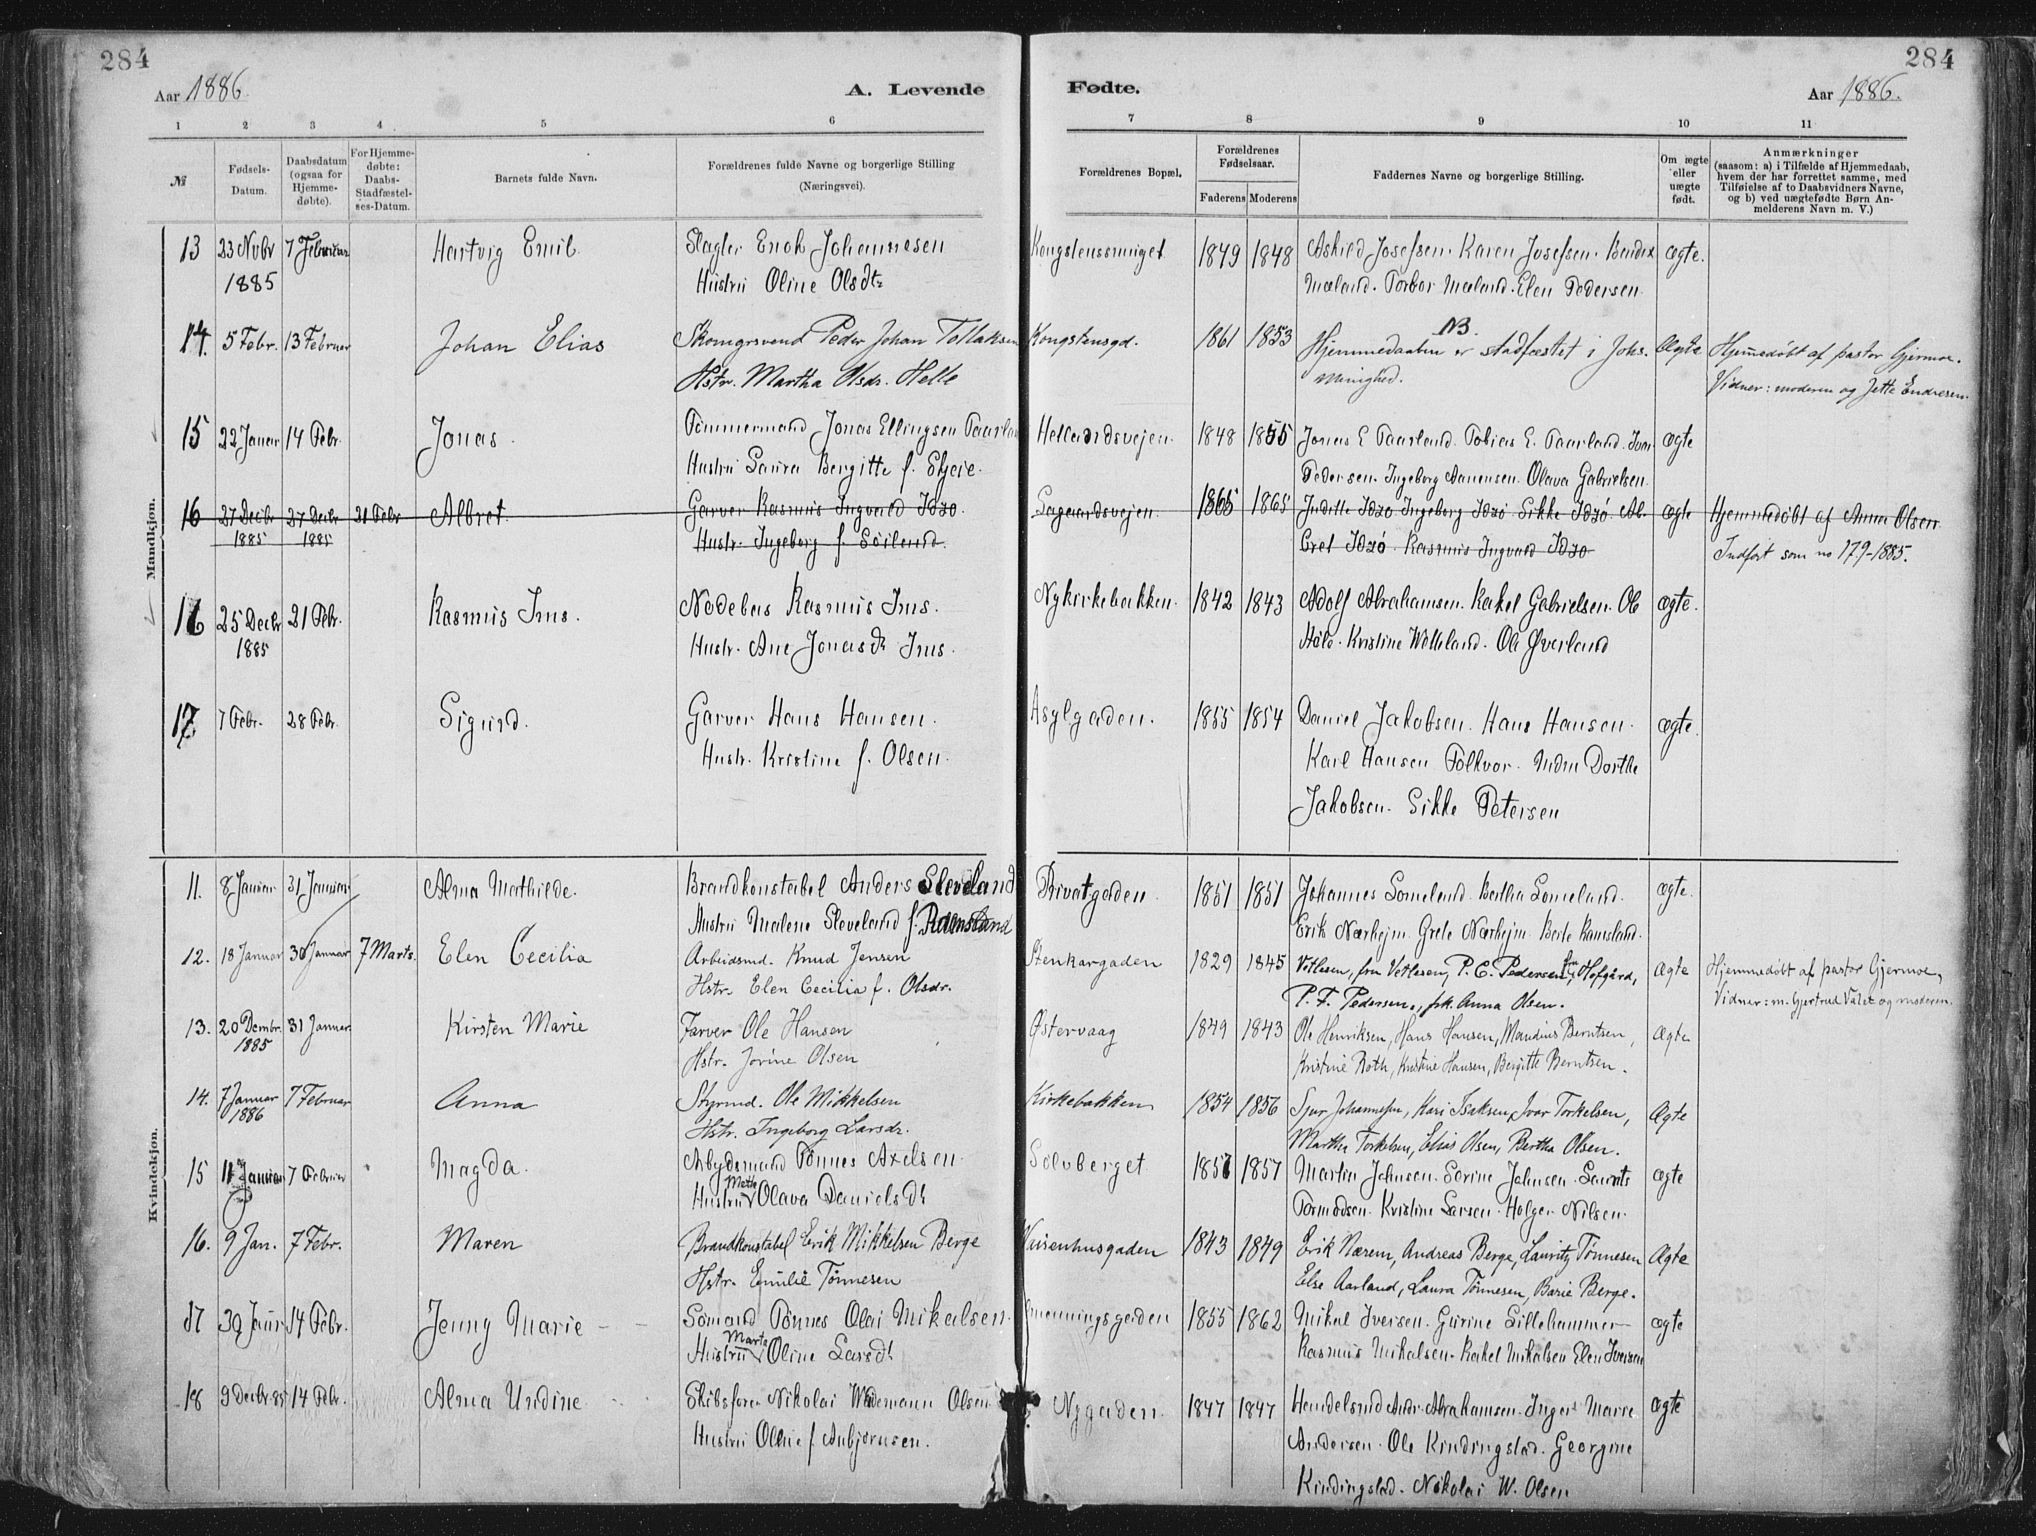 284
284
Aar 1886.
A. Levende
Fødte.
Aar 1886.
1 2 3 4 5 6 7 8 9 10 11
№
Fødsels-Datum.
Daabsdatum (ogsaa for Hjemme-døbte).
For Hjemme-døbte: Daabs-Stadfæstel-ses-Datum.
Barnets fulde Navn.
Forældrenes fulde Navne og borgerlige Stilling (Næringsvei).
Forældrenes Bopæl.
Forældrenes Fødselsaar.
Faderens Moderens
Faddernes Navne og borgerlige Stilling.
Om ægte eller uægte født.
Anmærkninger
(saasom: a) i Tilfælde af Hjemmedaab, hvem der har forrettet samme, med Tilføielse af to Daabsvidners Navne, og b) ved uægtefødte Børn An-melderens Navn m. V.)
Mandkjøn.
13 23 Novbr 7 Februar Hartvig Emil Slagter Enok Johannesen 1849 1848 Askild Josefsen. Karen Josefsen. Bendix ægte.
1885 Hustru Oline Olsdtr Mæland. Torbor Mæland. Elen Pedersen
14. 5 Febr. 13 Februar Johan Elias Skomgrsvend Peder Johan Tollaksen Kongstensgd. 1861 1853 NB. Hjemmedaaben er stadfæstet i Johs. Ægte Hjemmedøbt af pastor Gjermoe.
Hstr. Martha Olsdr. Helle menighed. Vidner: moderen og Jette Endresen.
15 22 Januar 14 Febr. Jonas. Tømmermand Jonas Ellingsen Paarland 1848 1855 Jonas E Paarland. Tobias E. Paarland. ægte
Hustru Laura Bergitte f. Skeie. Pedersen. Ingeborg Aanensen. Olava Gabrielsen.
16 27 Decbr 27 Decbr 21 Febr Albret. Garver Rasmus Ingvald Idsø. 1865 1865 Ingeborg Idsø. Sikke Idsø. Al- ægte Hjemmedøbt af Anna Olsen.
1885 1885 Hustr. Ingeborg f. bret Idsø. Rasmus Ingvard Idsø Indført som no 179-1885.
16 25 Decbr 21 Febr. Rasmus Ims. Rasmus Ims. Nykirkebakken. 1842 1843 Adolf Abrahamsen. Rakel Gabrielsen. Ole ægte.
1885 Hustr. Ane Jonasdr Ims. Kristine Welleland. Ole Øverland
17 7 Febr. 28 Febr. Sigurd. Garver Hans Hansen. Asylgaden. 1855 1854 Daniel Jakobsen. Hans Hansen. ægte.
Hustr. Kristine f. Olsen. Karl Hansen Folkvor. Dorthe
Jakobsen. Sikke Petersen
Kvindekjøn.
11. 8 Januar 31 Januar Alma Mathilde. Brandkonstabel Anders Sleveland Privatgaden. 1851 1851 Johannes Someland. Bertha Someland. ægte.
Hustru Malene Sleveland f. Ramsland Erik Nærhejm. Grete Nærhejm. Berte Ramsland.
12. 18 Januar 30 Januar 7 Marts. Elen Cecilia Arbeidsmd. Knud Jensen Stenkargaden 1829 1845 Vetlesen, fru Vetlesen, P. C. Pedersen, fru Hofgård, Ægte Hjemmedøbt af pastor Gjermoe,
Hstr. Elen Cecilia f. Olsdr. P. F. Pedersen, frk. Anna Olsen. Vidner: m. Gjertrud Valet og moderen.
13. 20 Dembr. 31 Januar Kirsten Marie Farver Ole Hansen Østervaag 1849 1843 Ole Henriksen, Hans Hansen, Maudius Berntsen, Ægte
1885 Hstr. Jorine Olsen Kristine Roth, Kristine Hansen, Bergitte Berntsen.
14. 7 Januar 7 Februar Anna Styrmd. Ole Mikkelsen Kirkebakken 1854 1856 Sjur Johannesen, Kari Isaksen, Ivar Torkelsen, Ægte
1886 Hstr. Ingeborg Larsdr. Martha Torkelsen, Elias Olsen, Bertha Olsen.
15 11 Januar 7 Februar Magda. Arbydsmand Tønnes Axelsen Sølvberget 1857 1857 Martin Johnsen. Serine Johnsen. Laurits ægte
Hustru Mette Olava Danielsdr Tormodsen. Kristine Larsen. Holger Nilsen.
16. 9 Jan. 7 Febr. Maren Brandkonstabel Erik Mikkelsen Berge Vaisenhusgaden 1843 1849 Erik Nærem, Andreas Berge, Lauritz Tønnesen Ægte
Hstr. Emilie Tønnesen Else Aarland, Laura Tønnesen, Barie Berge.
17 30 Januar 14 Febr. Jenny Marie Sømand Tønnes Olai Mikalsen. 1855 1862 Mikal Iversen. Gurine Lillehammer ægte
Hustru Marte Oline Larsdt Rasmus Mikalsen. Rakel Mikalsen Elen Iversen
18 9 Decbr. 85 14 Febr. Alma Undine Skibsfører Nikolai Widemann Olsen Nygaden. 1847 1847 Handelsmd Andr. Abrahamsen. Inger Marie ægte
Hustru Olene f Anbjørnsen. Andersen. Ole Kindingstad. Georgine
Kindingstad. Nikolai W. Olsen